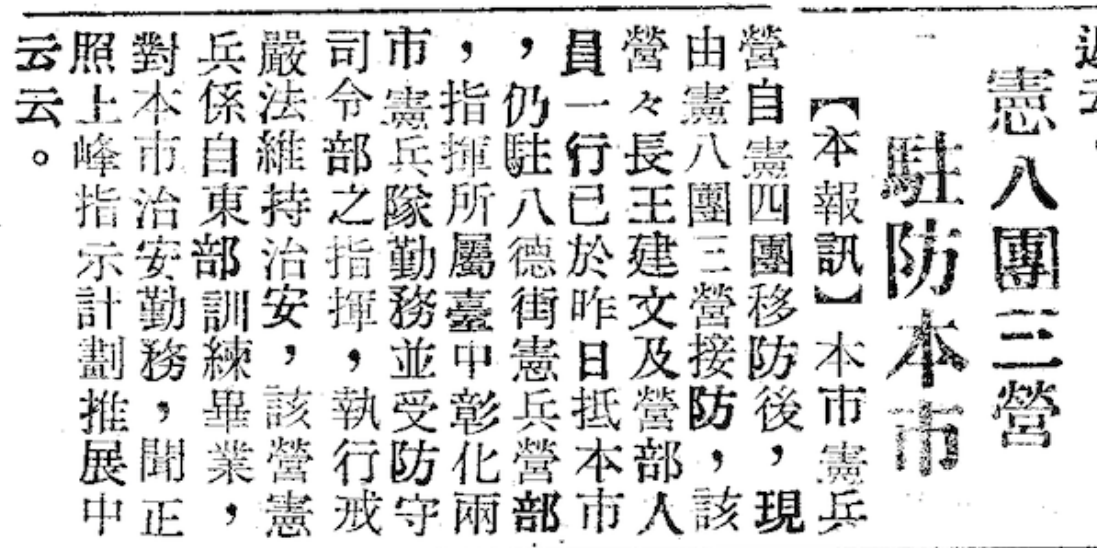 憲八團三營
駐防本市
【本報訊】本市憲兵
營自憲四團移防後，現
由憲八團三營接防，該
營々長王建文及營部人
員一行已於昨日抵本市
，仍駐八德街憲兵營部
，指揮所屬臺中彰化兩
市憲兵隊勤務並受防守
司令部之指揮，執行戒
嚴法維持治安，該營憲
兵係自東部訓練畢業，
對本市治安勤務，聞正
照上峰指示計劃推展中
云云。